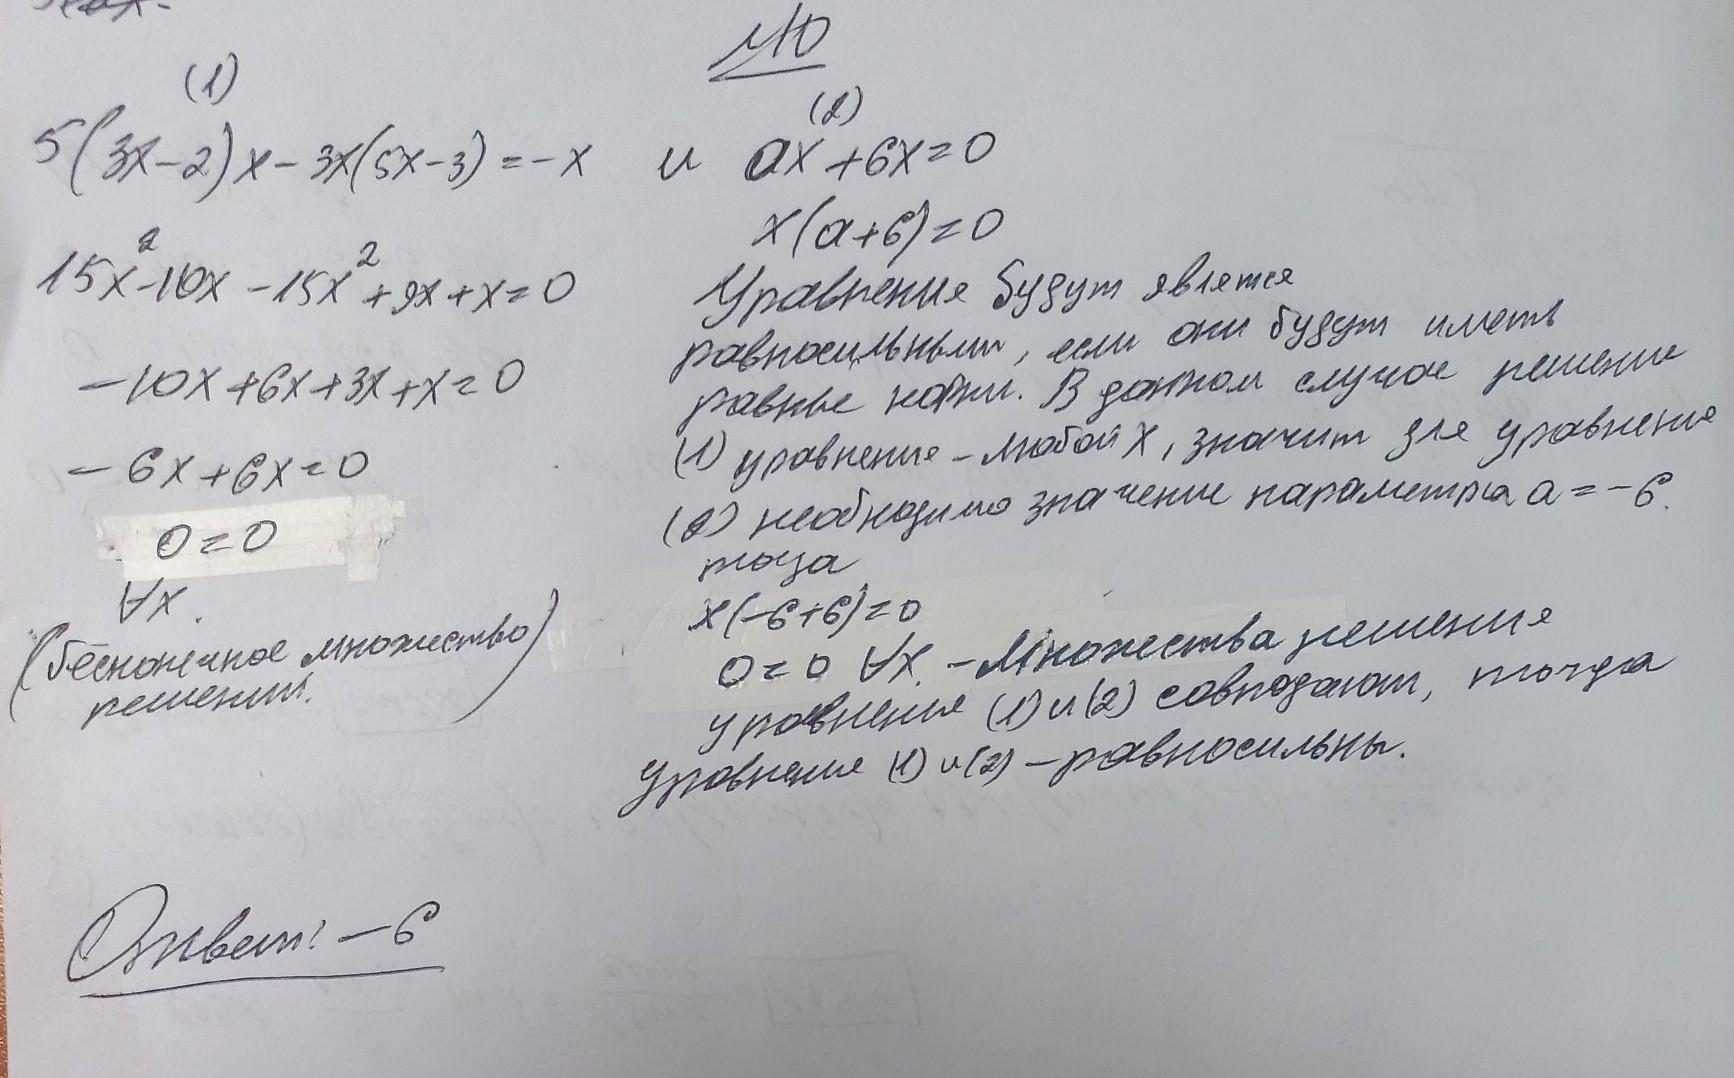 №10
(1)
5(3x-2)x-3x(5x-3)=-x и
15x²-10x-15x²+9x+x=0
-10x+6x+3x+x=0
-6x+6x=0
0=0
∀x.
(бесконечное множество
решений.)
(2)
ax+6x=0
x(a+6)=0
Уравнения будут явлется
равносильными, если они будут иметь
равные корни. В данном случае решение
(1) уравнения - любой x, значит для уравнения
(2) необходимо значение параметра a=-6.
тогда
x(-6+6)=0
0=0 ∀x. - Множества решения
уравнения (1) и (2) совподают, тогда
уравнения (1) и (2) - равносильны.
Ответ: -6